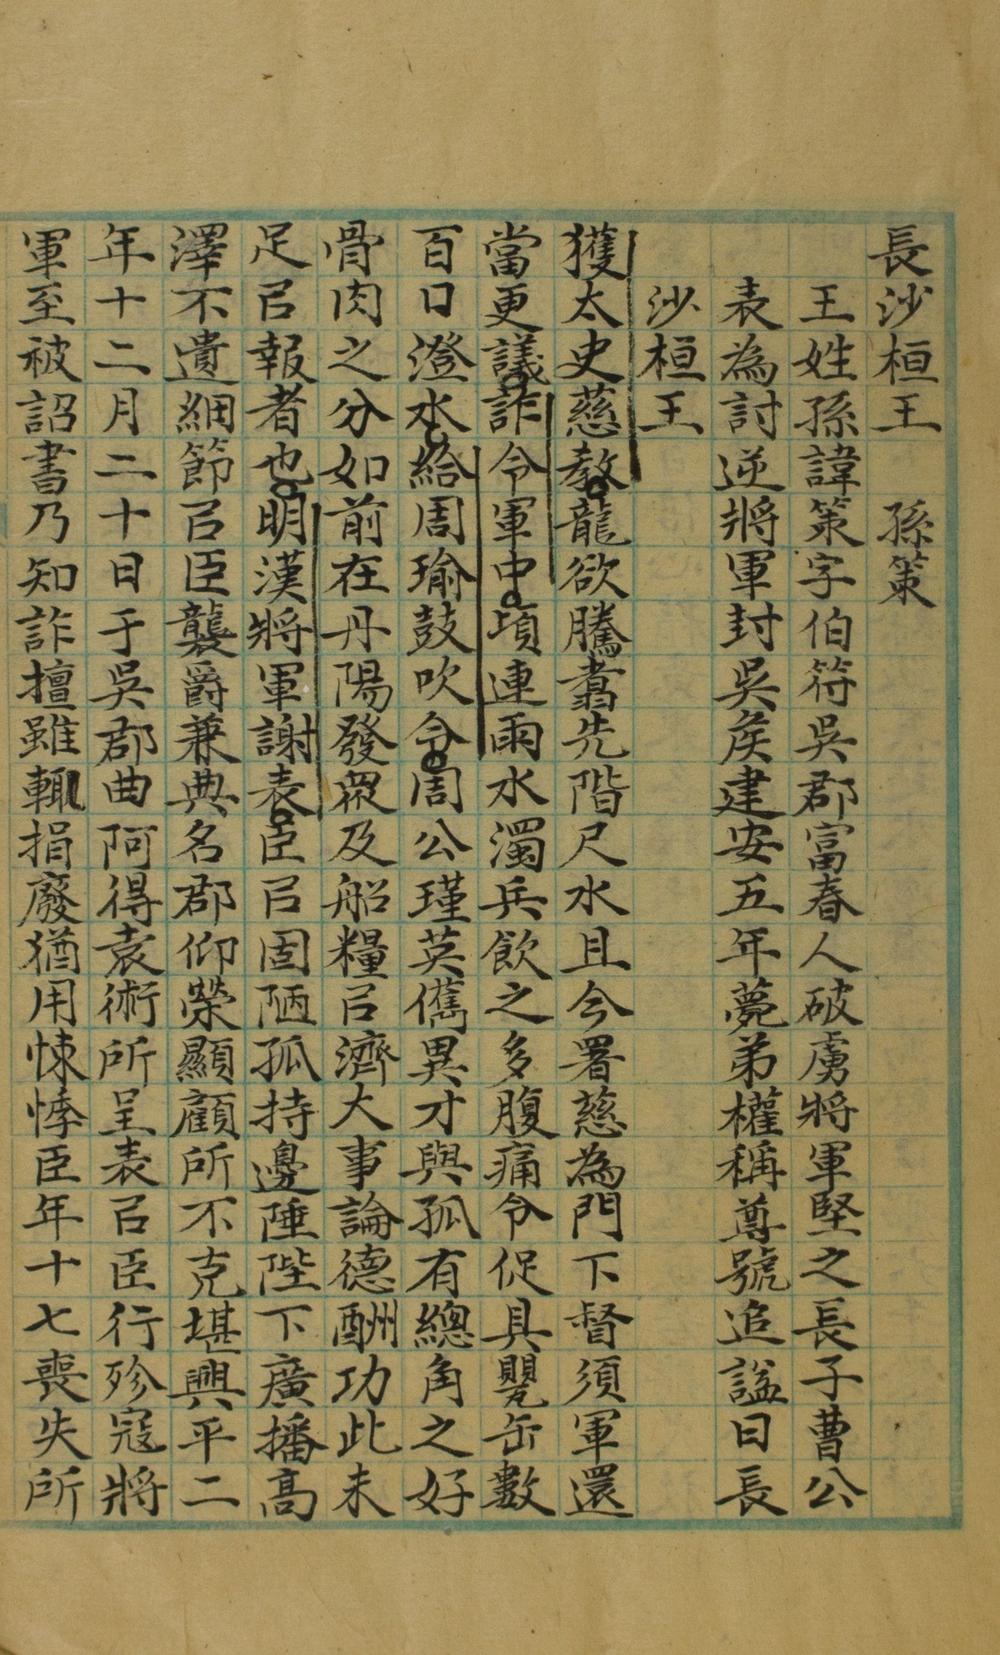 長沙桓王　孫策
王姓孫諱策字伯符吳郡富春人破虜將軍堅之長子曹公
表為討逆將軍封吳侯建安五年薨弟權稱尊號追諡曰長
沙桓王
獲太史慈教龍欲騰翥先階尺水且今署慈為門下督須軍還
當更議詐令軍中頃連雨水濁兵飲之多腹痛令促具甖缶數
百口澄水給周瑜鼓吹令周公瑾英儁異才與孤有總角之好
骨肉之分如前在丹陽發眾及船糧㠯濟大事論德酬功此未
足㠯報者也明漢將軍謝表臣㠯固陋孤持邊陲陛下廣播高
澤不遺細節㠯臣襲爵兼典名郡仰榮顯顧所不克堪興平二
年十二月二十日于吳郡曲阿得袁術所呈表㠯臣行殄寇將
軍至被詔書乃知詐擅雖輒捐廢猶用悚悸臣年十七喪失所